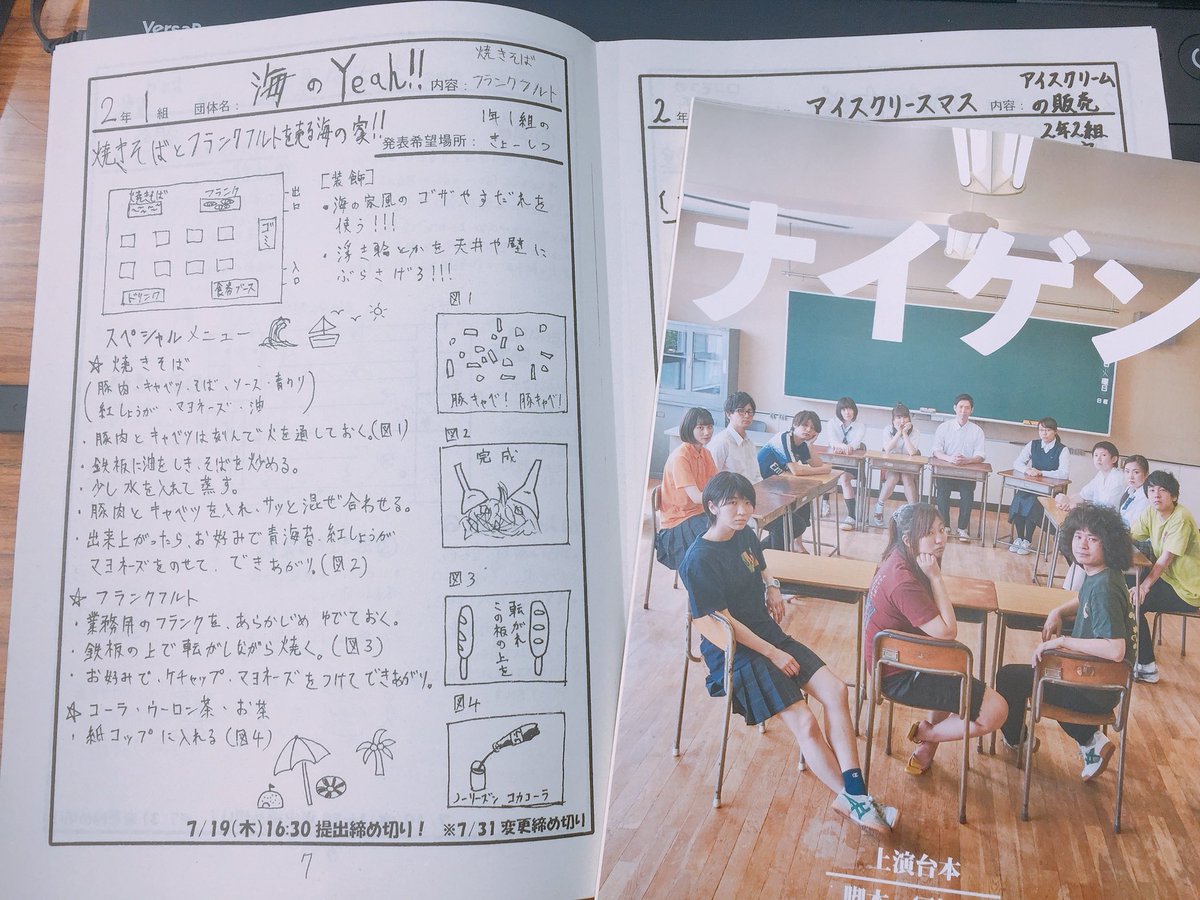 海のYeah!!
焼きそば
2年1組 団体名: 内容: フランクフルト
焼きそばとフランクフルトを売る海の家!!
1年1組の
発表希望場所: きょーしつ
焼きそば
フランク
出口
ゴミ
入口
ドリンク
食券ブース
[装飾]
・海の家風のゴザやすだれを
使う!!!
・浮き輪とかを天井や壁に
ぶらさげる!!!
スペシャルメニュー
☆焼きそば
(豚肉・キャベツ・そば・ソース・青のり
紅しょうが・マヨネーズ・油)
・豚肉とキャベツは刻んで火を通しておく。(図1)
・鉄板に油をしき、そばを炒める。
・少し水を入れて蒸す。
・豚肉とキャベツを入れ、サッと混ぜ合わせる。
・出来上がったら、お好みで青海苔、紅しょうが
マヨネーズをのせて、できあがり。(図2)
☆フランクフルト
・業務用のフランクを、あらかじめゆでておく。
・鉄板の上で転がしながら焼く。(図3)
・お好みで、ケチャップ、マヨネーズをつけてできあがり。
☆コーラ・ウーロン茶・お茶
・紙コップに入れる(図4)
図1
豚キャベ! 豚キャベ!
図2
完成
図3
転がれ
この板の上を
図4
ノーリーズン コカコーラ
7/19(木)16:30提出締め切り! ※7/31変更締め切り
7
アイスクリーム
2年 アイスクリースマス 内容: の販売
2年2組
ナイゲン
上演台本